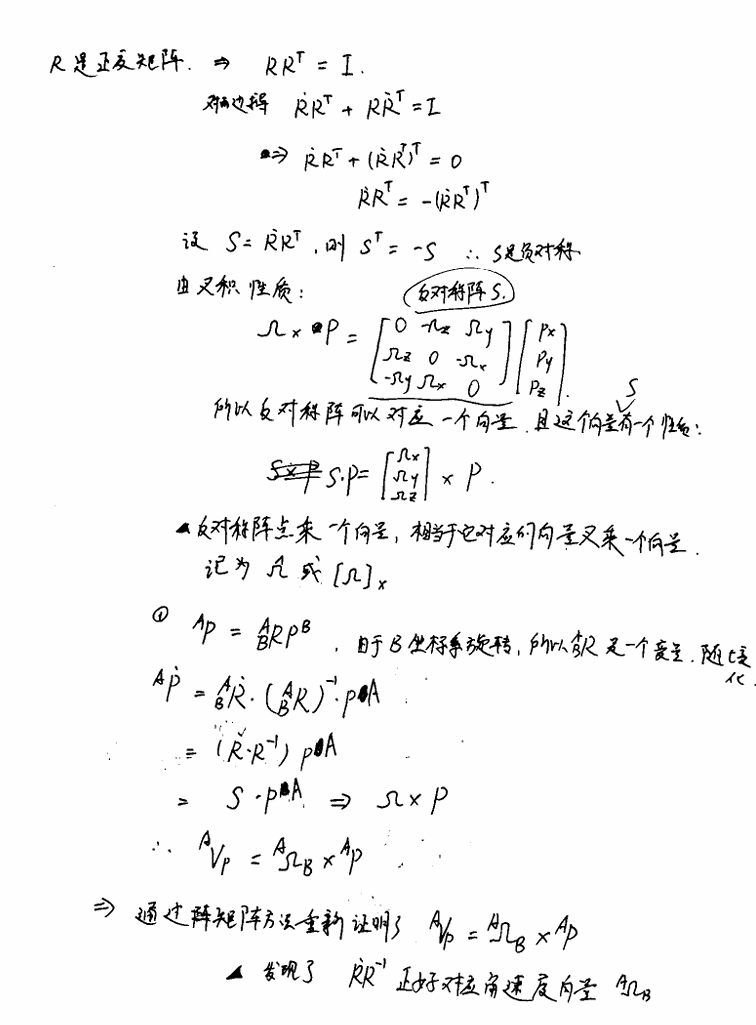 R是正交矩阵. ⇒ RRᵀ = I.
对两边求导 ṘRᵀ + RṘᵀ = I
⇒ ṘRᵀ + (ṘRᵀ)ᵀ = 0
ṘRᵀ = -(ṘRᵀ)ᵀ
设 S = ṘRᵀ, 则 Sᵀ = -S ∴ S是负对称
由叉积性质: 反对称阵S.
Ω × P = [0 -Ωz Ωy; Ωz 0 -Ωx; -Ωy Ωx 0] [Px; Py; Pz].
所以反对称阵可以对应一个向量. 且这个向量有一个性质: S
S·P = [Ωx; Ωy; Ωz] × P.
▲反对称阵点乘一个向量, 相当于它对应的向量叉乘一个向量.
记为 Ω̂ 或 [Ω]ₓ
① ᴬP = ᴬ_BR Pᴮ, 由于B坐标系旋转, 所以ᴬ_BR是一个变量. 随t变
化.
ᴬṖ = ᴬ_BṘ·(ᴬ_BR)⁻¹·Pᴬ
= (Ṙ·R⁻¹) Pᴬ
= S·Pᴬ ⇒ Ω × P
∴ ᴬVₚ = ᴬΩ_B × ᴬP
⇒ 通过矩阵方法重新证明了 ᴬVₚ = ᴬΩ_B × ᴬP
▲ 发现了 ṘR⁻¹ 正好对应角速度向量 ᴬΩ_B